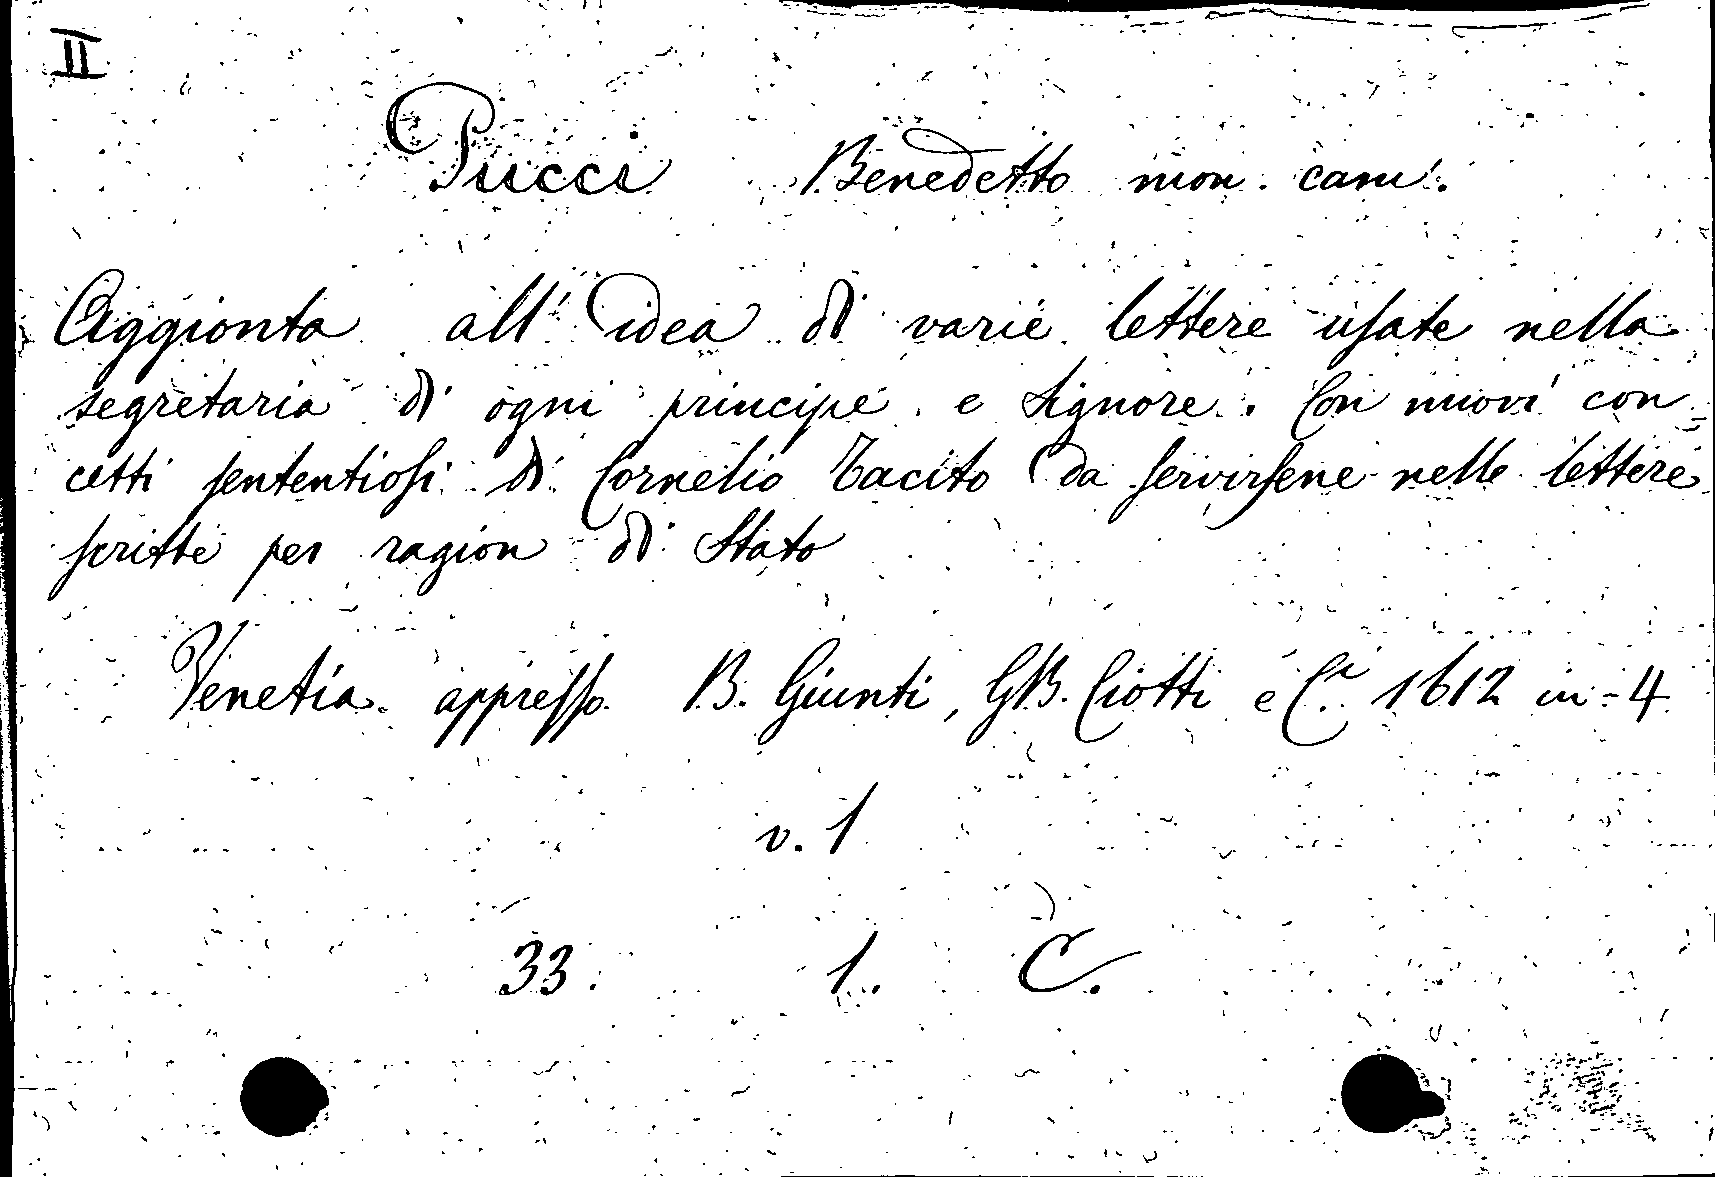 II
Pucci Benedetto mon. cam.
Aggionta all' idea di varie lettere usate nella
segretaria di ogni principe e signore. Con nuovi con
cetti sententiosi di Cornelio Tacito da servirsene nelle lettere
scritte per ragion di Stato
Venetia appresso B. Giunti, GB. Ciotti e C.ⁱ 1612 in-4
v. 1
33. 1. C.